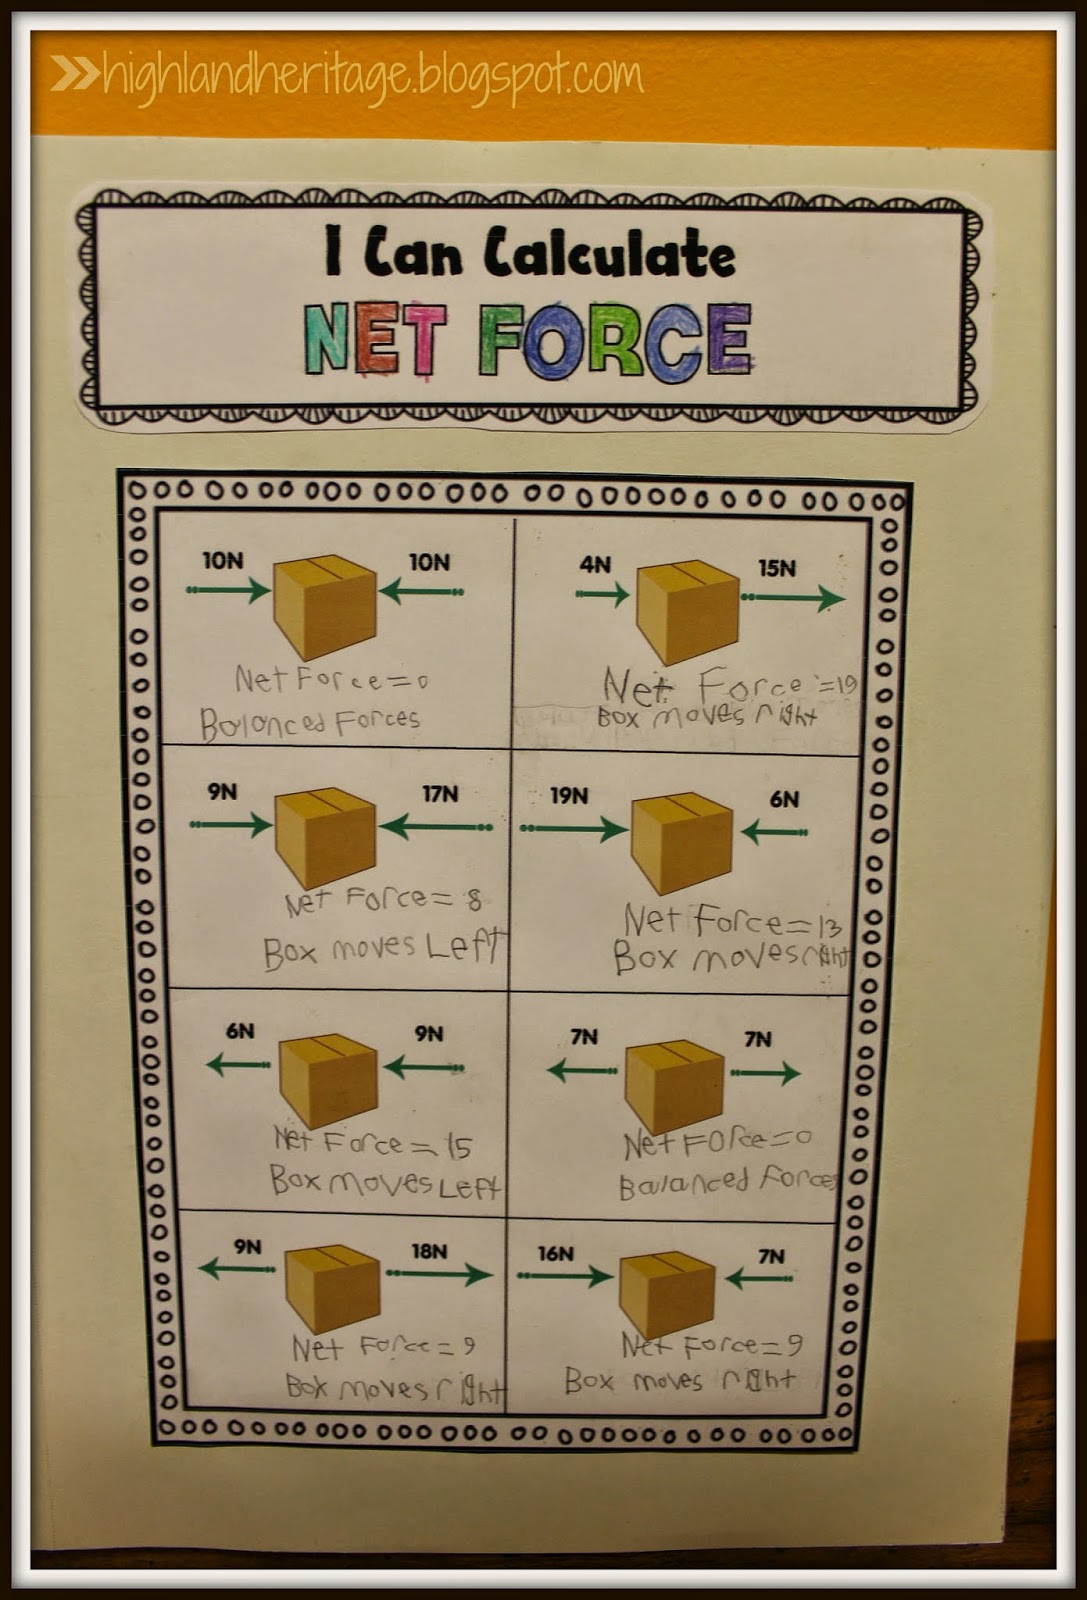 highlandheritage.blogspot.com
I Can Calculate
NET FORCE
10N 10N
Net Force = 0
Balanced Forces
4N 15N
Net Force = 19
Box moves right
9N 17N
Net Force = 8
Box moves Left
19N 6N
Net Force = 13
Box moves right
6N 9N
Net Force = 15
Box moves Left
7N 7N
Net Force = 0
Balanced Forces
9N 18N
Net Force = 9
Box moves right
16N 7N
Net Force = 9
Box moves right